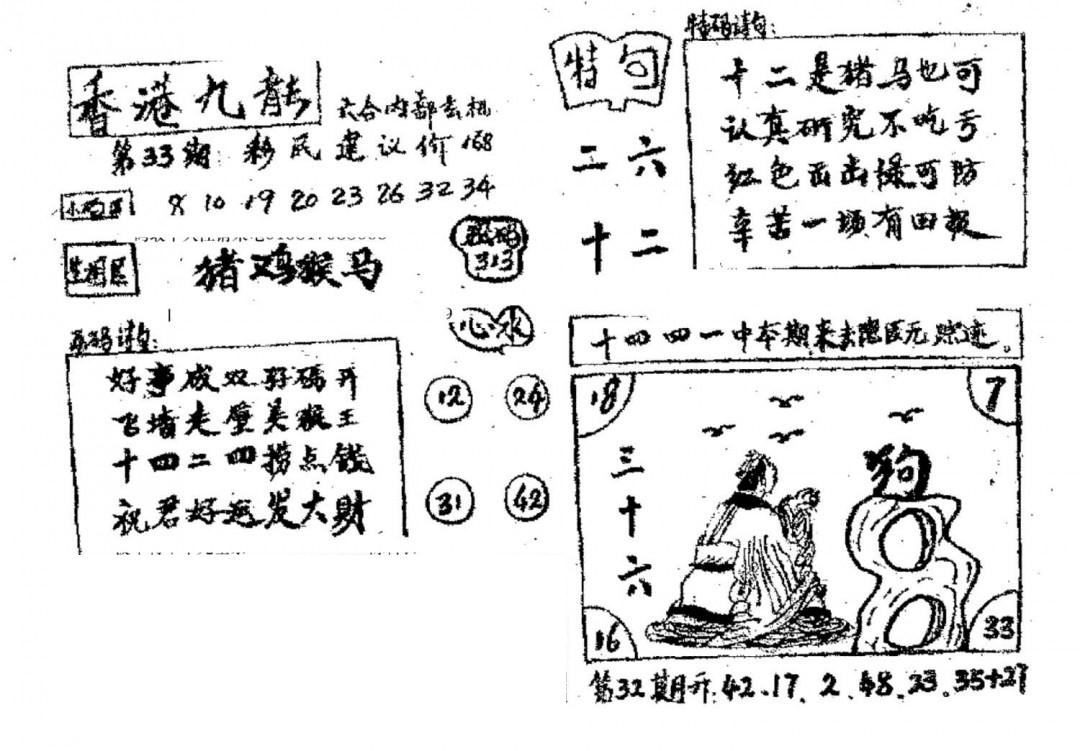 香港九龍
六合内部玄机
第33期:彩民建议价168
8 10 19 20 23 26 32 34
生肖区
猪鸡猴马
密码
313
心水
12 24
31 42
好事成双好码开
飞墙走壁美猴王
十四二四捞点钱
祝君好运发大财
特码诗句:
特句
二六
十二
十二是猪马也可
认真研究不吃亏
红色出击绿可防
辛苦一场有回报
十四四一中本期来去隐匿无踪迹。
18
7
三十六
狗
16
33
第32期开.42.17.2.48.23.35+27